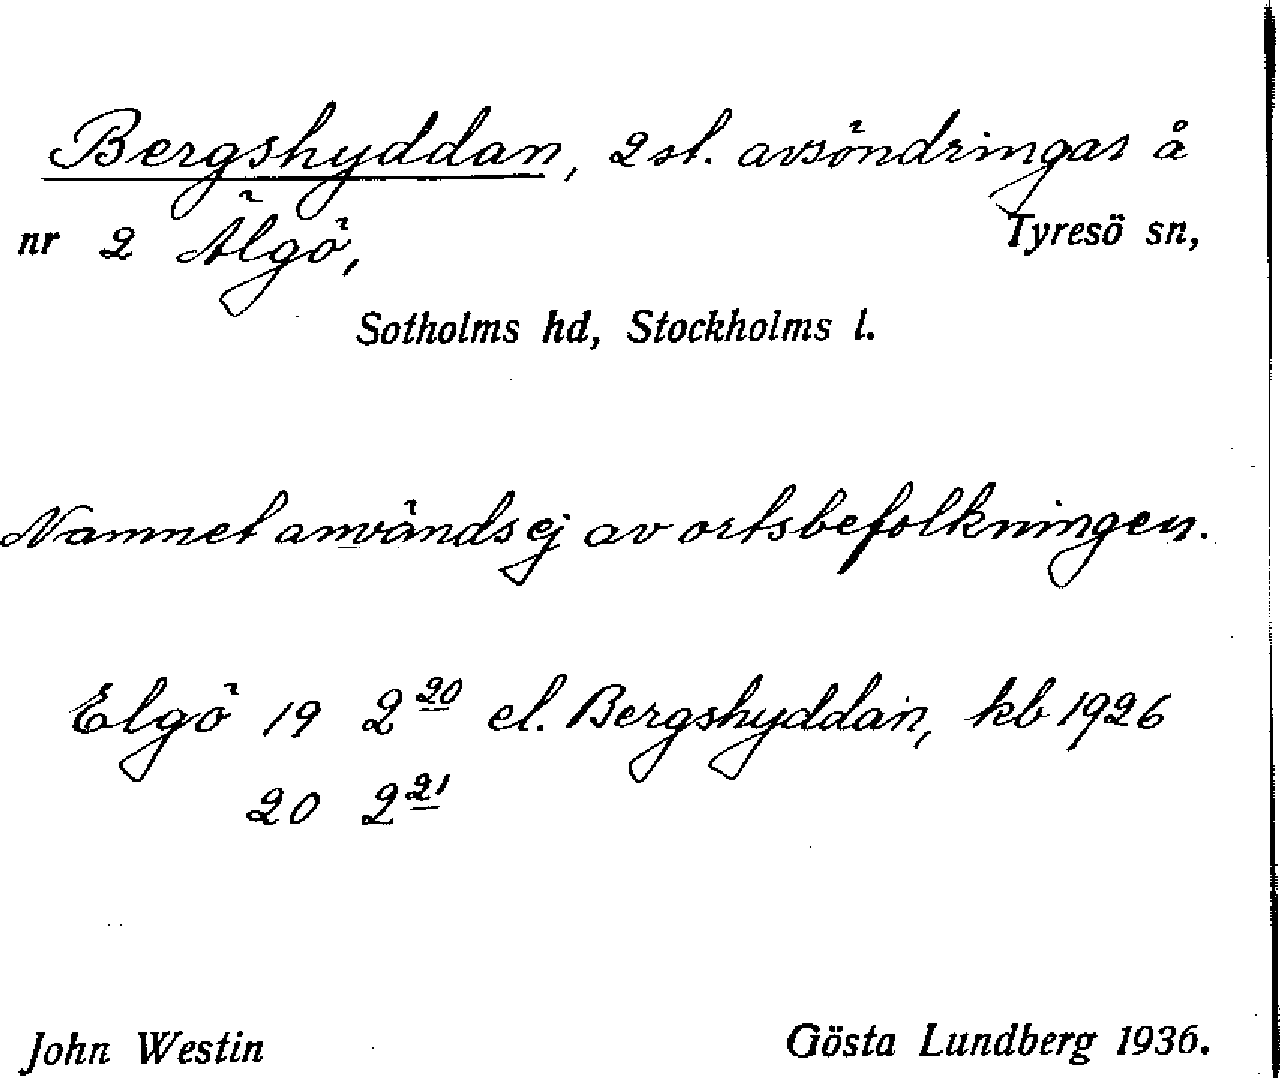 Bergshyddan, 2 st. avsöndringar å
nr 2 Älgö, Tyresö sn,
Sotholms hd, Stockholms l.
Namnet användes ej av ortsbefolkningen.
Elgö 19 2 20 el. Bergshyddan, kb 1926
20 2 21
John Westin Gösta Lundberg 1936.